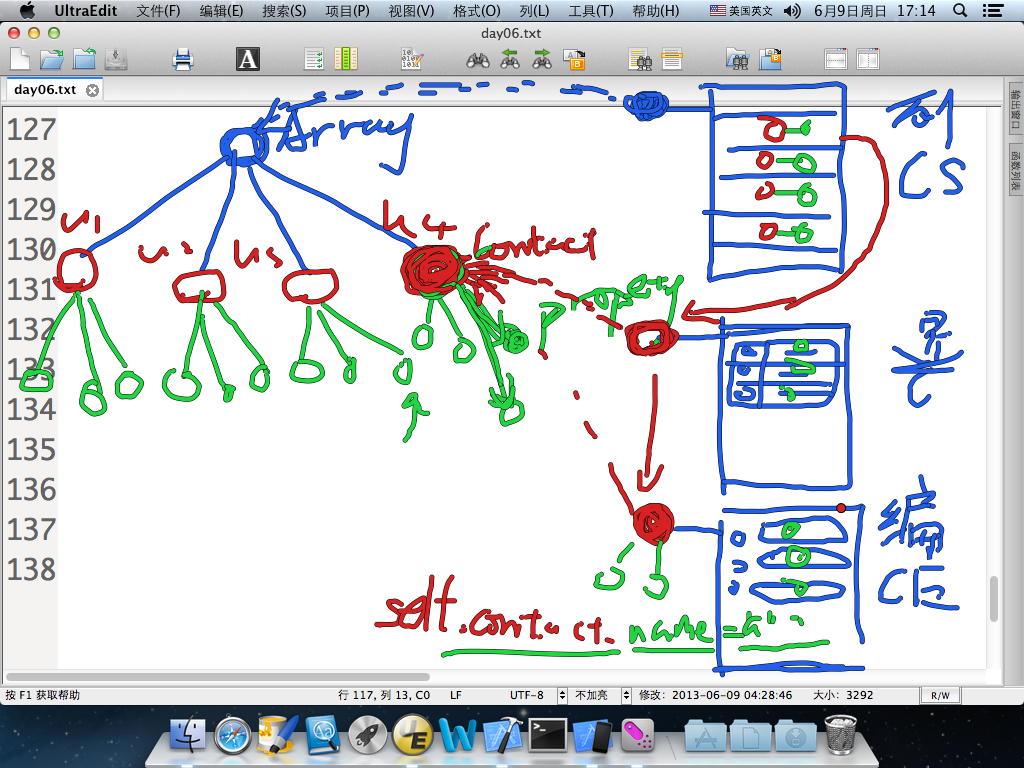 UltraEdit 文件(F) 编辑(E) 搜索(S) 项目(P) 视图(V) 格式(O) 列(L) 工具(T) 帮助(H) 美国英文 6月9日周日 17:14
day06.txt
day06.txt
输出窗口
函数列表
127
128
129
130
131
132
133
134
135
136
137
138
Array
CS
u1
u4
Contact
property
self.contact.name=
按 F1 获取帮助 行 117, 列 13, C0 LF UTF-8 不加亮 修改: 2013-06-09 04:28:46 大小: 3292 R/W